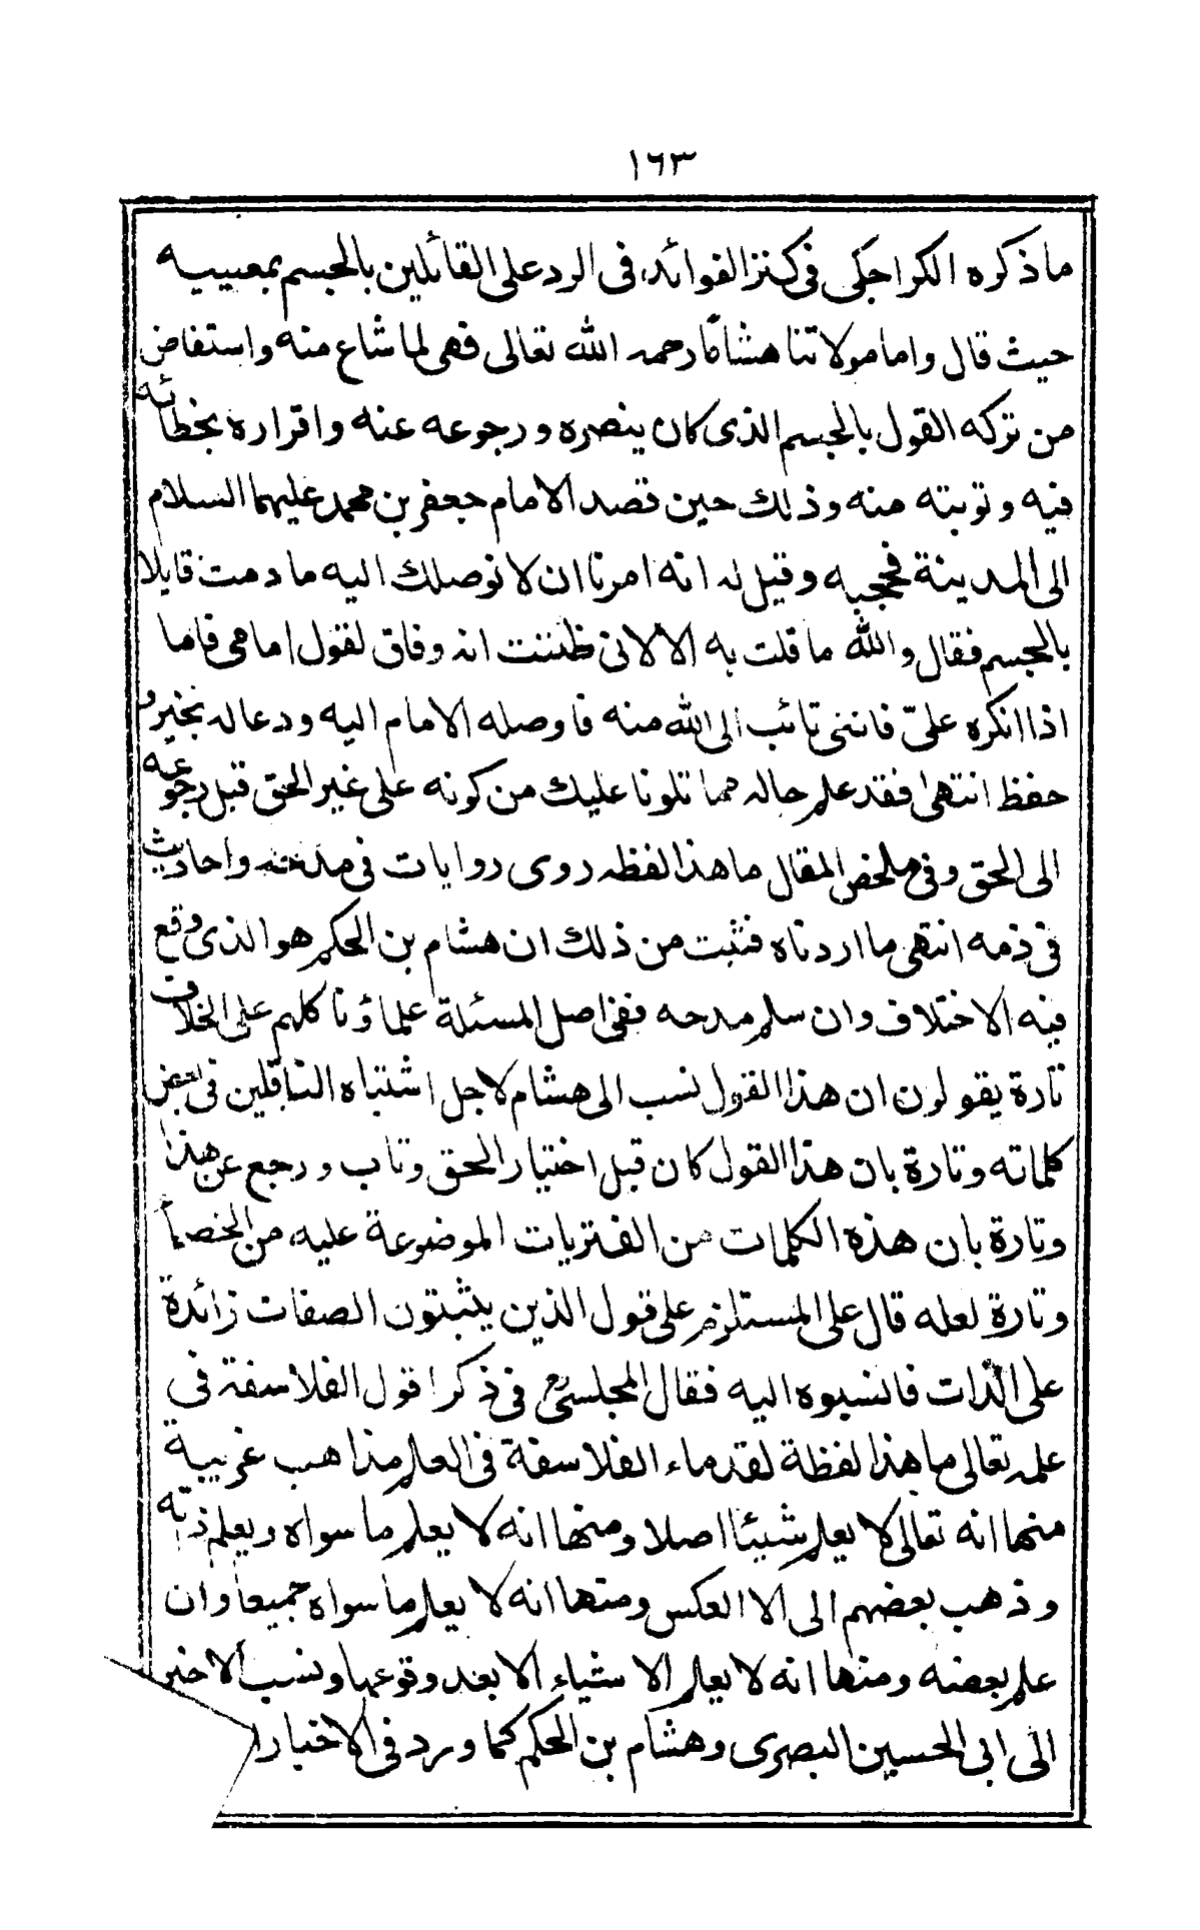 ١٦٣
ما ذكره الكراجكى فى كنز الفوائد، فى الرد على القائلين بالجسم بمعنييه
حيث قال واما مولاتنا هشاما رحمه الله تعالى فهى لما شاع منه واستفاض
من تركه القول بالجسم الذى كان ينصره ورجوعه عنه واقراره بخطائه
فيه وتوبته منه وذلك حين قصد الامام جعفر بن محمد عليهما السلام
الى المدينة فحجبه وقيل له انه امرنا ان لا نوصلك اليه ما دمت قايلا
بالجسم فقال والله ما قلت به الا لانى ظننت انه وفاق لقول امامى فاما
اذا انكره علىّ فاننى تائب الى الله منه فاوصله الامام اليه ودعا له بخير و
حفظ انتهى فقد علم حاله مما تلونا عليك من كونه على غير الحق قبل رجوعه
الى الحق وفى ملخص المقال ما هذا لفظه روى روايات فى مدحه واحاديث
فى ذمه انتهى ما اردناه فثبت من ذلك ان هشام بن الحكم هو الذى وقع
فيه الاختلاف وان سلم مدحه ففى اصل المسئلة علماؤنا كلهم على الخلاف
تارة يقولون ان هذا القول نسب الى هشام لاجل اشتباه الناقلين فى بعض
كلماته وتارة بان هذا القول كان قبل اختيار الحق وتاب ورجع عن هذا
وتارة بان هذه الكلمات من الفتريات الموضوعة عليه من الخصماء
وتارة لعله قال على المستلزم على قول الذين يثبتون الصفات زائدة
على الذات فانسبوه اليه فقال المجلسىؒ فى ذكر اقول الفلاسفة فى
علمه تعالى ما هذا لفظة لقدماء الفلاسفة فى العلم مذاهب غريبة
منها انه تعالى لا يعلم شيئا اصلا ومنها انه لا يعلم ما سواه ويعلم ذاته
وذهب بعضهم الى الا العكس ومنها انه لا يعلم ما سواه جميعا وان
علم بعضه ومنها انه لا يعلم الا شياء الا بعد وقوعها ونسب الاخير
الى ابى الحسين البصرى وهشام بن الحكم كما ورد فى الاخبار